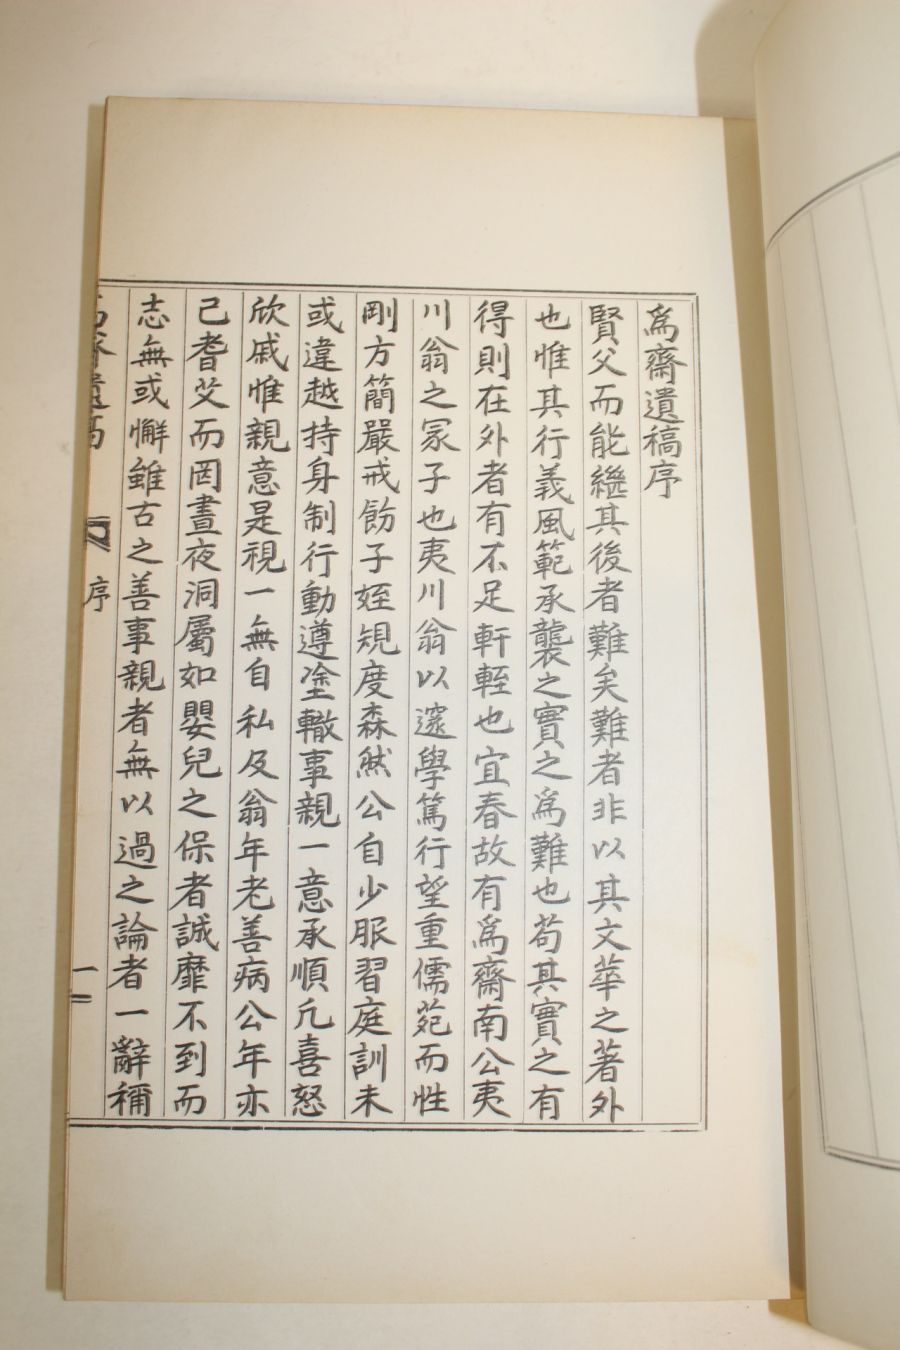 爲齋遺稿序
賢父而能繼其後者難矣難者非以其文華之著外
也惟其行義風範承襲之實之爲難也苟其實之有
得則在外者有不足軒輊也宜春故有爲齋南公夷
川翁之冢子也夷川翁以邃學篤行望重儒苑而性
剛方簡嚴戒飭子姪規度森然公自少服習庭訓未
或違越持身制行動遵塗轍事親一意承順凢喜怒
欣戚惟親意是視一無自私及翁年老善病公年亦
己耆艾而罔晝夜洞屬如嬰兒之保者誠靡不到而
志無或懈雖古之善事親者無以過之論者一辭稱
序
一